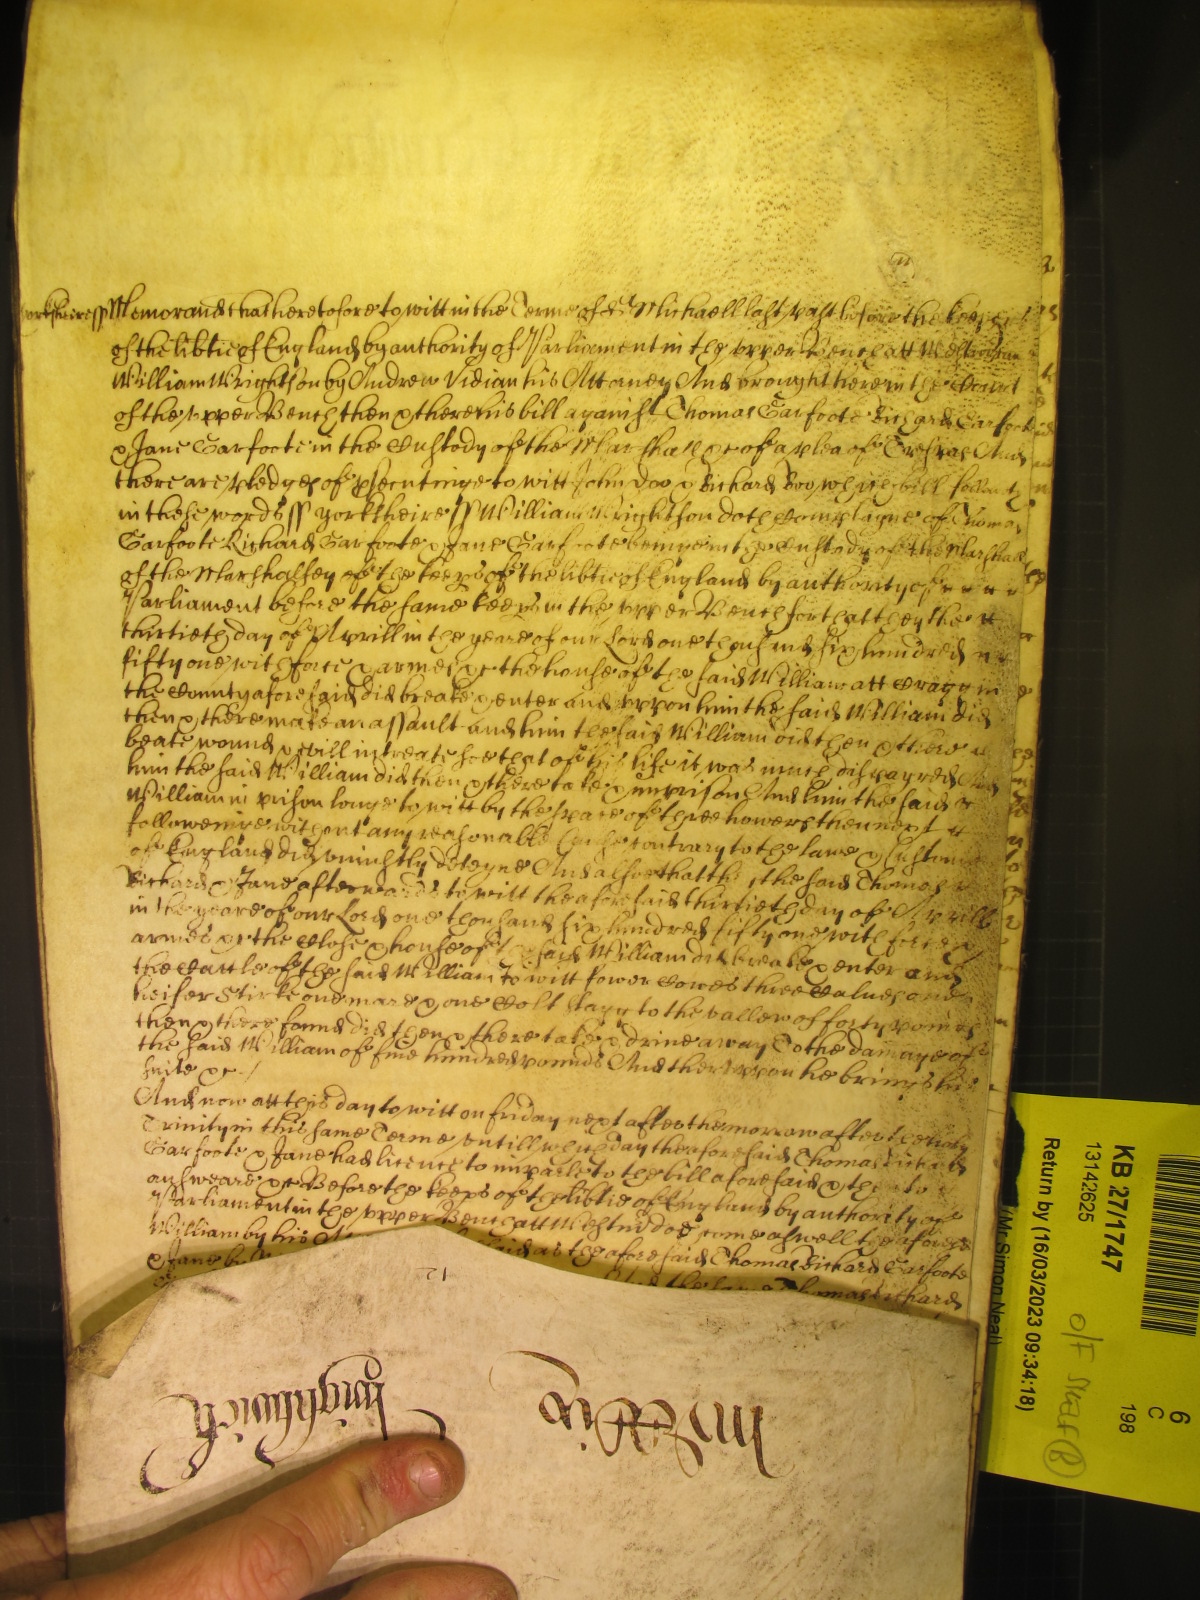 yorksheire ss Memorand that heretofore to witt in the Terme of St Michaell last past before the keepers
of the libtie of England by authority of Parliament in the upper Bench att Westminster
William Wrightson by Andrew Vidian his Attorney And brought here in the Court
of the upper Bench then & there his bill against Thomas Garfoote Richard Garfoote
& Jane Garfoote in the Custody of the Marshall &c of a plea of Trespas And
there are pledges of psecutinge to witt John Doo & Richard Roo, which bill followeth
in these words ss yorksheire ss William Wrightson doth complayne of Thomas
Garfoote Richard Garfoote & Jane Garfoote beinge in the Custody of the Marshall
of the Marshalsey of the keeps of the libtie of England by authority of
Parliament before the same keeps in the upper Bench for that they the
thirtieth day of Aprill in the yeare of our Lord one thousand six hundred
fifty one with force & armes &c the house of the said William att Cragg in
the County aforesaid did breake & enter and uppon him the said William did
then & there make an assault and him the said William did then & there
beate wound & evill intreate soe that of his life it was much dispayred And
him the said William did then & there take & imprison And him the said
William in prison longe to witt by the space of three howers then next
followeinge without any reasonable Cause contrary to the lawe & Custome
of England did uniustly deteyne And alsoe that the said Thomas
Richard & Jane afterwards to witt the aforesaid thirtieth day of Aprill
in the yeare of our Lord one thousand six hundred fifty one with force &
armes &c the close & house of the said William did breake & enter and
the cattle of the said William to witt fower cowes three calves one
heifer Stirke one mare & one colt stagg to the vallew of forty pounds
then & there found did then & there take & drive away To the damage of
the said William of five hundred pounds And thereuppon he brings his
suite &c /
And now att this day to witt on friday next after the morrow after the holy
Trinity in this same Terme untill which day the aforesaid Thomas Richard
Garfoote & Jane had licence to imparle to the bill aforesaid & then to
answeare &c Before the keeps of the libtie of England by authority of
Parliament in the upper Bench att Westm doe come aswell the aforesaid
William by his said as the aforesaid Thomas Richard Garfoote
& Jane by
And the said Thomas Richard
12
Knightwich
KB 27/1747
13142625
Return by (16/03/2023 09:34:18)
(Mr Simon Neal)
6
C
198
O/F